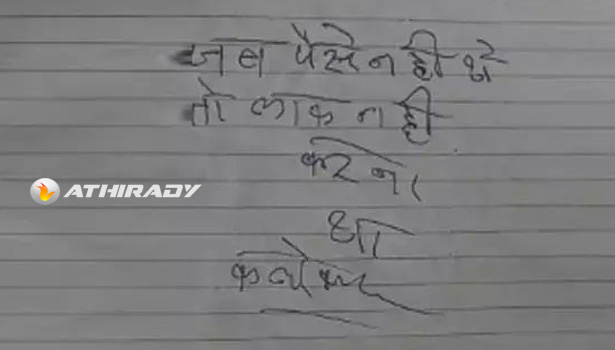 जब पैसे नही थे
तो लाक नही
करना
ATHIRADY
था
कलेक्टर